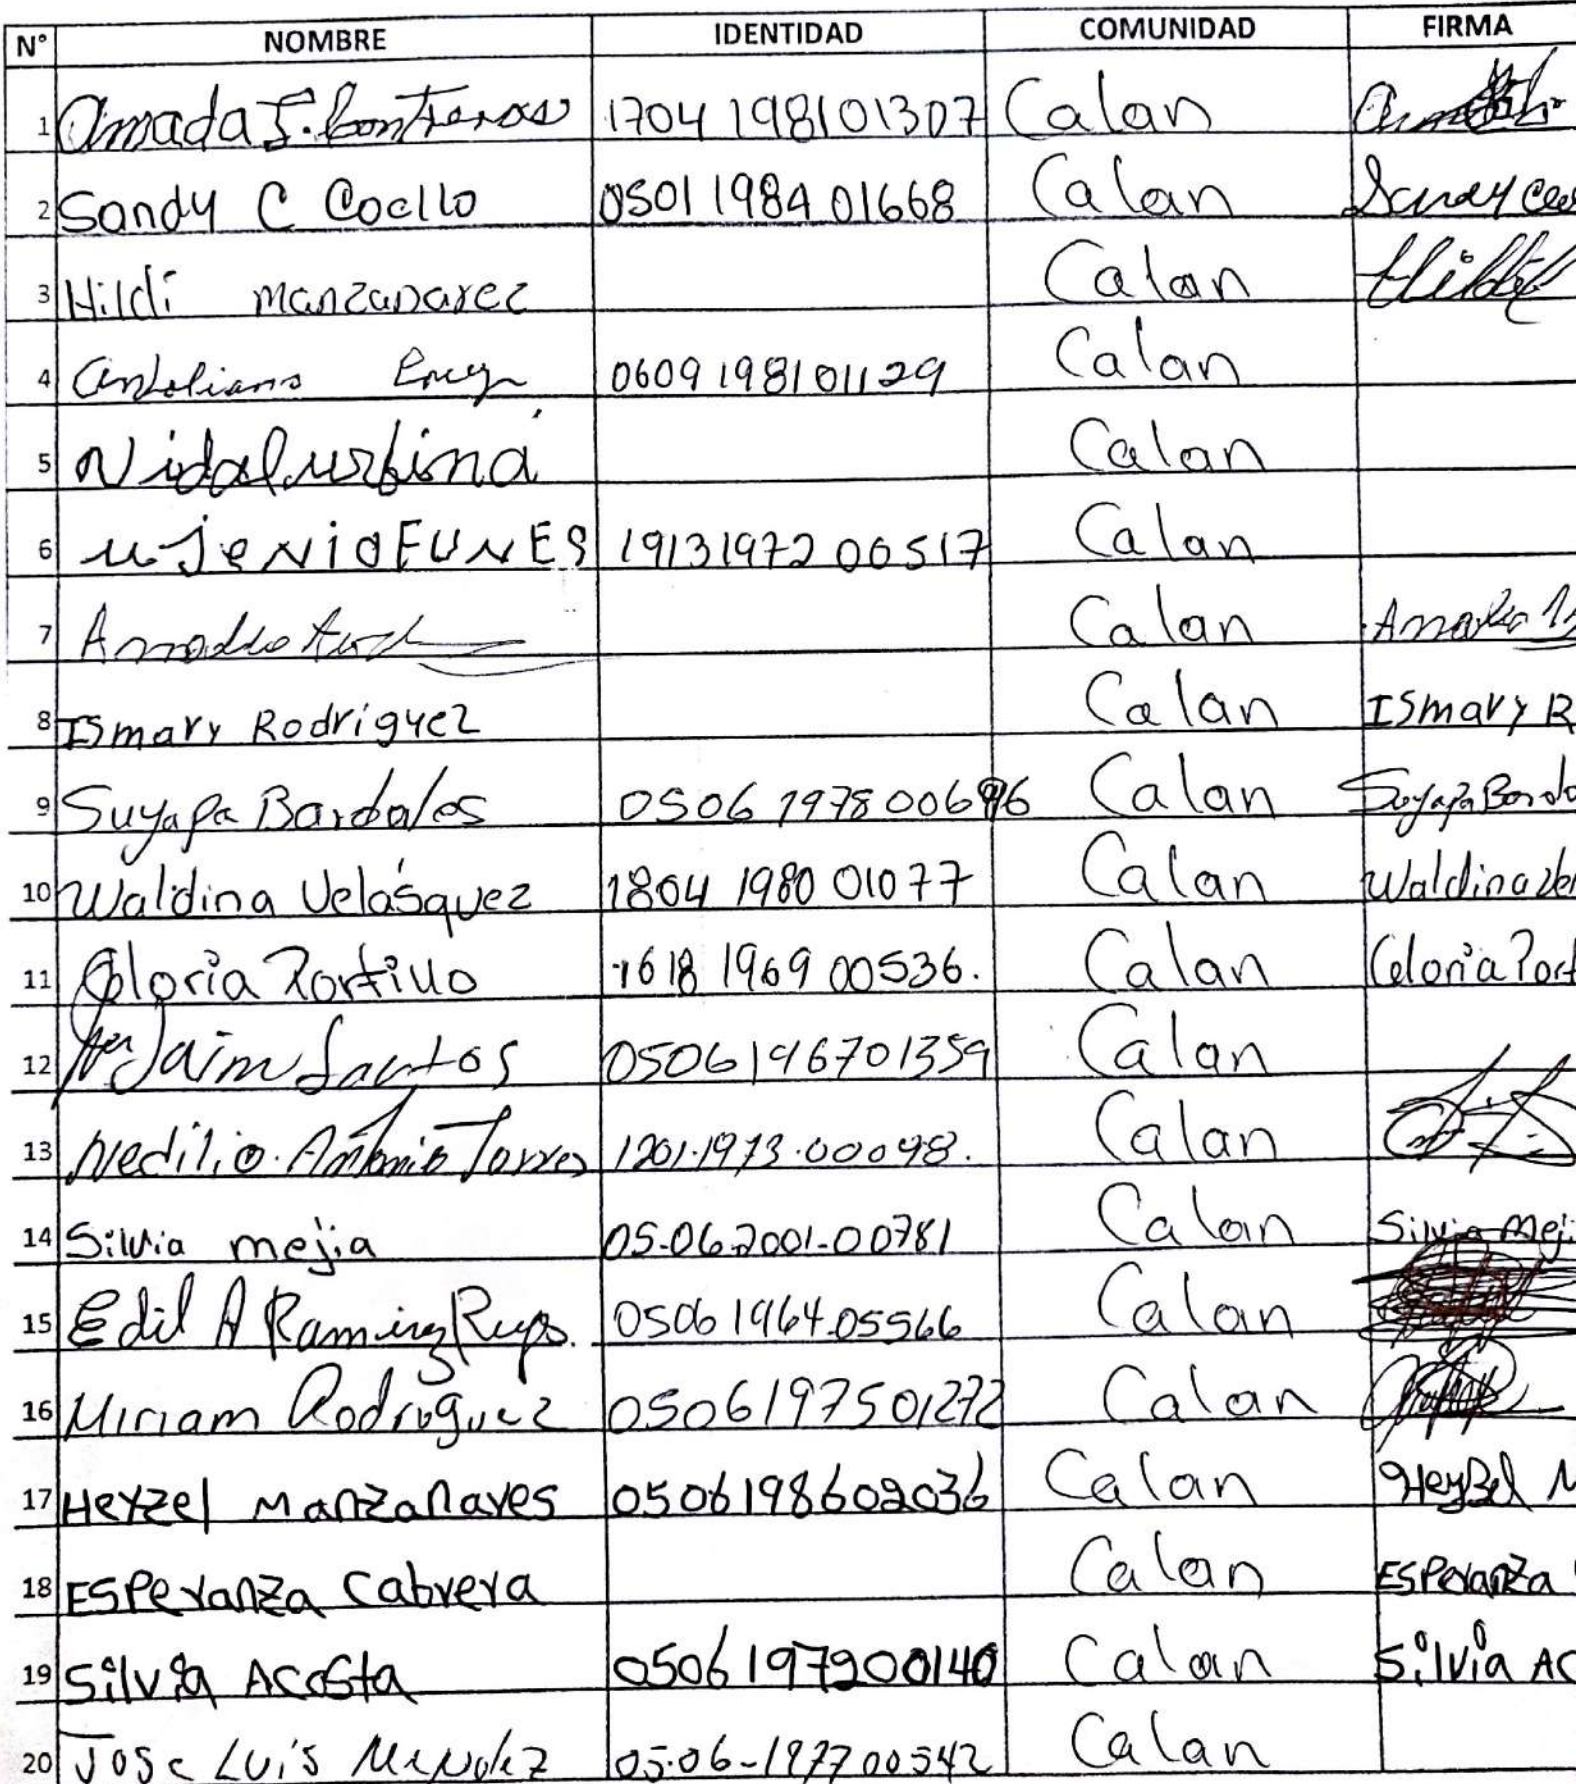 N° NOMBRE IDENTIDAD COMUNIDAD FIRMA
1 Amada J. Contreras 1704 1981 01307 Calan
2 Sandy C Coello 0501 1984 01668 Calan Sandy Coe
3 Hildi manzanarez Calan Hilda
4 0609 1981 01129 Calan
5 Nidal urbina Calan
6 uJeNio FUNES 1913 1972 00517 Calan
7 Calan
8 Ismary Rodriguez Calan Ismary R
9 Suyapa Bardales 0506 1978 00696 Calan Suyapa Barda
10 Waldina Velásquez 1804 1980 01077 Calan Waldina Vel
11 Gloria Portillo 1618 1969 00536. Calan Gloria Port
12 Santos 0506196701359 Calan
13 Nedilio. Antonio Torres 1201.1973.00098. Calan
14 Silvia mejia 05-06-2001-00781 Calan Silvia Meji
15 Edil A Ramirez 0506 1964 05566 Calan
16 Miriam Rodriguez 0506197501272 Calan
17 Heyzel Manzanares 0506198602036 Calan Heyzel M
18 Esperanza Cabrera Calan Esperanza
19 Silvia Acosta 0506197200140 Calan Silvia AC
20 Jose Luis Mendez 05-06-1977 00542 Calan